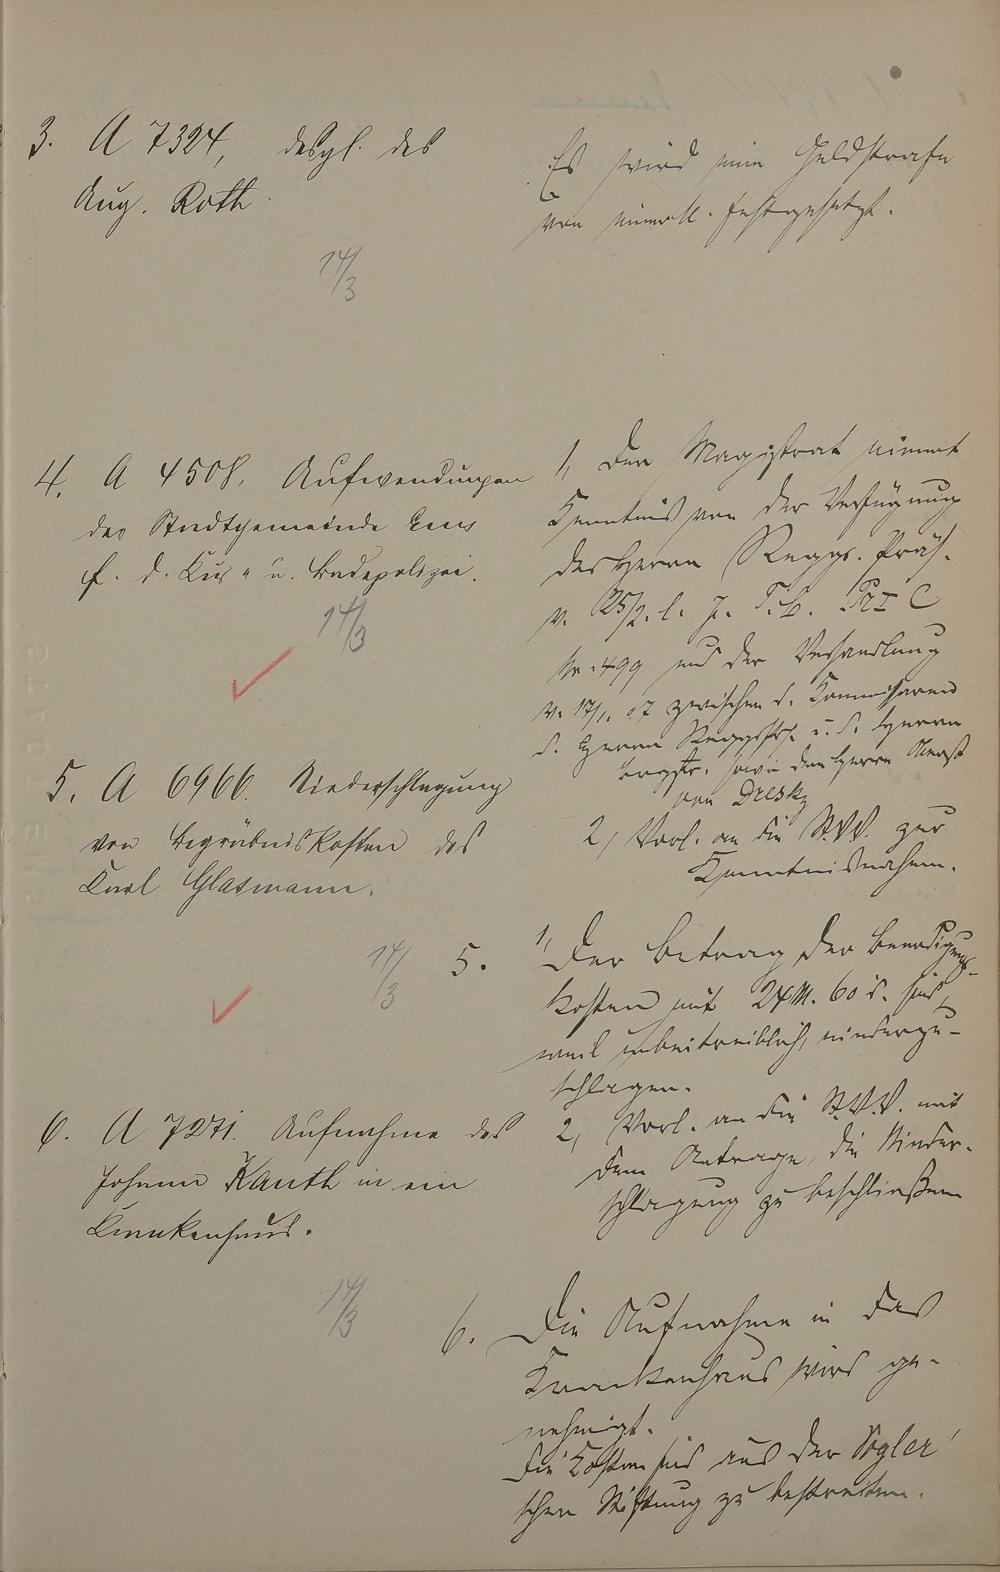 3. A 7324, desgl. des
Aug. Roth
14/3
Es wird eine Geldstrafe
von festgesetzt.
4. A 4508. Aufwendungen
der Stadtgemeinde Ems
f. d. Kur- u. Badepolizei.
14/3
1, Der Magistrat nimmt
Kenntnis von der Verfügung
des Herrn Reggs. Präs.
v. 25/2. l. J. T.b. Pr I C
Nr. 499 und der Verhandlung
v. 17/1. 07 zwischen d. Kommissaren
d. Herrn Reggspräs. u. d. Herrn
sowie dem Herrn Oberst
von Dresky
2, Vorl. an die St.V.V. zur
Kenntnisnahme.
5. A 6966. Niederschlagung
von Begräbniskosten des
Karl Glasmann.
14/3
5. 1, Der Betrag der Beerdigungs-
kosten mit 24 M. 60 d. sind,
weil unbeitreiblich, niederzu-
schlagen.
2, Vorl. an die St.V.V. mit
dem Antrage, die Nieder-
schlagung zu beschließen
6. A 7271. Aufnahme des
Johann Kauth in ein
Krankenhaus.
14/3
6. Die Aufnahme in das
Krankenhaus wird ge-
nehmigt.
Die Kosten sind aus der Vogler'
schen Stiftung zu bestreiten.